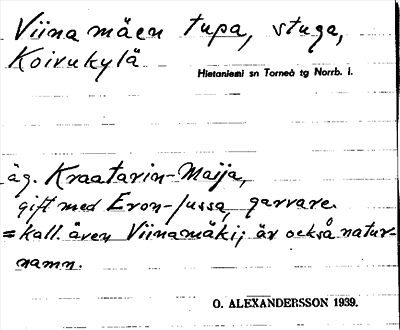 Viinamäen tupa, stuga,
Koivukylä
Hietaniemi sn Torneå tg Norrb. l.
äg. Kraatarin-Maija,
gift med Eron-Jussa, garvare.
= kall. även Viinamäki; är också natur-
namn.
O. ALEXANDERSSON 1939.